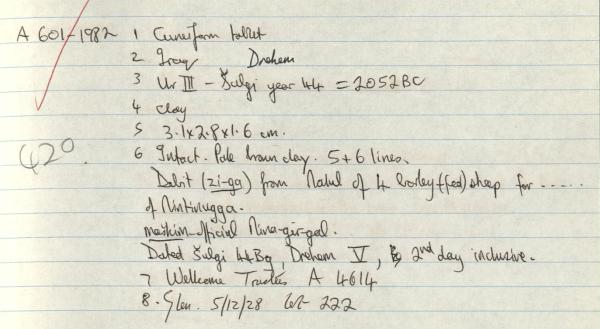 A 601-1982 1 Cuneiform tablet
2 Iraq Drehem
3 Ur III - Šulgi year 44 = 2052BC
4 clay
5 3.1x2.8x1.6 cm.
420.
6 Intact. Pale brown clay. 5+6 lines.
Debit (zi-ga) from Nalul of 4 barley-(fed) sheep for ......
of Nintinugga.
maškim-official Nina-gir-gal.
Dated Šulgi 44Bq, Drehem V, 2nd day inclusive.
7 Wellcome Trustees A 4614
8. Glen. 5/12/28 Lot 222